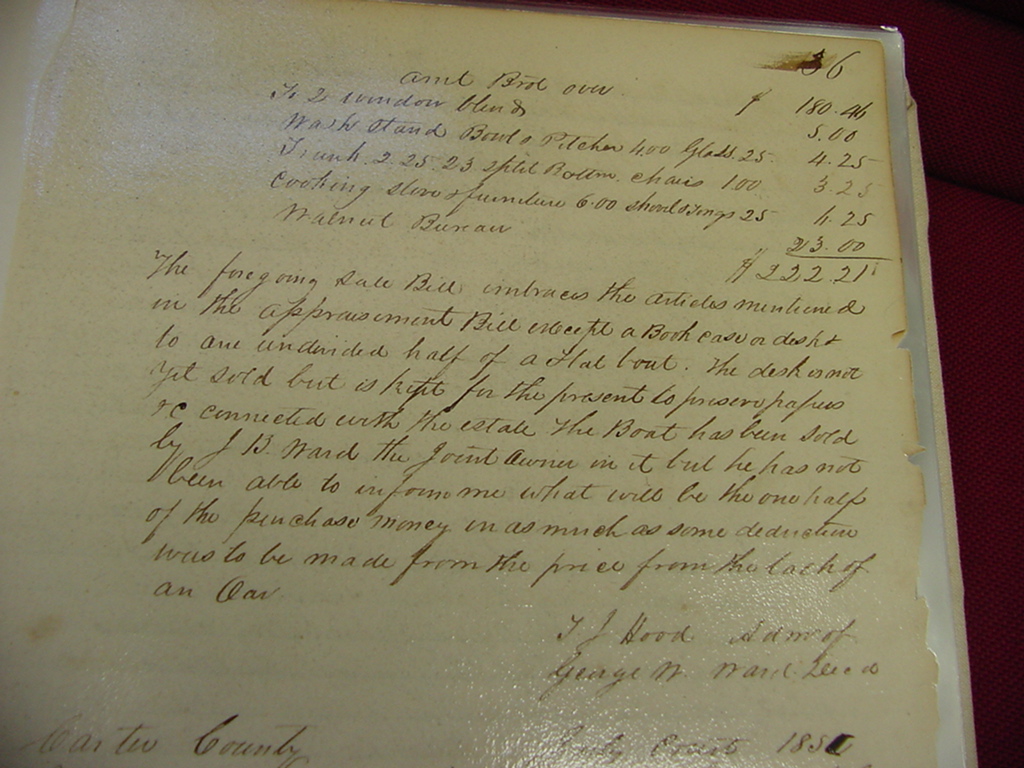 36
Amt Brot over $ 180.46
To 2 window blinds 5.00
Wash Stand Bowl & Pitcher 4.00 Glass .25 4.25
Trunk 2.25 23 split Bottom chairs 1.00 3.25
Cooking stove & furniture 6.00 shovel & tongs 25 6.25
Walnut Bureau 23.00
$ 222.21
The foregoing Sale Bill embraces the articles mentioned
in the appraisement Bill except a Book case or desk &
to an undivided half of a Flat boat. The desk is not
yet sold but is kept for the present to preserve papers
&c connected with the estate The Boat has been sold
by J B. Ward the Joint Owner in it but he has not
been able to inform me what will be the one half
of the purchase money in as much as some deduction
was to be made from the price from the lack of
an Oar
T J Hood Admr of
George W. Ward Decd
Carter County Court 185